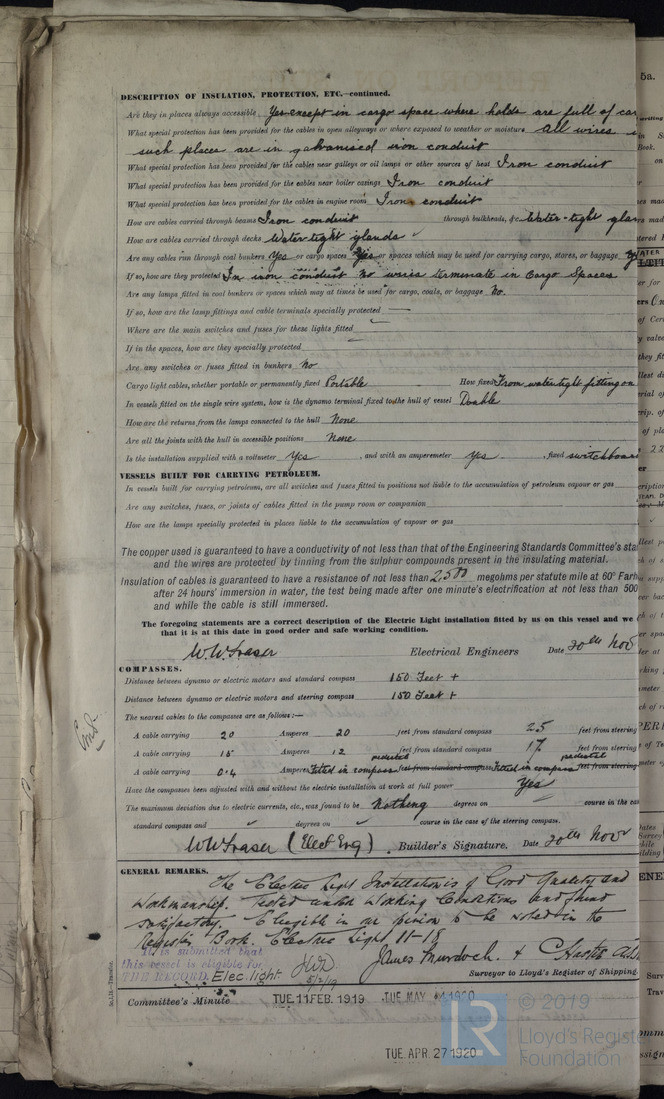 DESCRIPTION OF INSULATION, PROTECTION, ETC.—continued.
Are they in places always accessible Yes except in cargo space where holds are full of car
What special protection has been provided for the cables in open alleyways or where exposed to weather or moisture All wires
such places are in galvanised iron conduit
What special protection has been provided for the cables near galleys or oil lamps or other sources of heat Iron conduit
What special protection has been provided for the cables near boiler casings Iron conduit
What special protection has been provided for the cables in engine room Iron conduit
How are cables carried through beams Iron conduit through bulkheads, &c. Water-tight glan
How are cables carried through decks Water tight glands
Are any cables run through coal bunkers Yes or cargo spaces Yes or spaces which may be used for carrying cargo, stores, or baggage
If so, how are they protected In iron conduit no wires terminate in Cargo Spaces
Are any lamps fitted in coal bunkers or spaces which may at times be used for cargo, coals, or baggage No.
If so, how are the lamp fittings and cable terminals specially protected
Where are the main switches and fuses for these lights fitted
If in the spaces, how are they specially protected
Are any switches or fuses fitted in bunkers No
Cargo light cables, whether portable or permanently fixed Portable How fixed From watertight fitting on
In vessels fitted on the single wire system, how is the dynamo terminal fixed to the hull of vessel Double
How are the returns from the lamps connected to the hull None
Are all the joints with the hull in accessible positions None
Is the installation supplied with a voltmeter Yes , and with an amperemeter Yes , fixed switchboard
VESSELS BUILT FOR CARRYING PETROLEUM.
In vessels built for carrying petroleum, are all switches and fuses fitted in positions not liable to the accumulation of petroleum vapour or gas
Are any switches, fuses, or joints of cables fitted in the pump room or companion
How are the lamps specially protected in places liable to the accumulation of vapour or gas
The copper used is guaranteed to have a conductivity of not less than that of the Engineering Standards Committee's sta
and the wires are protected by tinning from the sulphur compounds present in the insulating material.
Insulation of cables is guaranteed to have a resistance of not less than 2500 megohms per statute mile at 60° Farh
after 24 hours' immersion in water, the test being made after one minute's electrification at not less than 500
and while the cable is still immersed.
The foregoing statements are a correct description of the Electric Light installation fitted by us on this vessel and we
that it is at this date in good order and safe working condition.
W.W. Fraser Electrical Engineers Date 30th Nov
COMPASSES.
Distance between dynamo or electric motors and standard compass 150 Feet +
Distance between dynamo or electric motors and steering compass 150 Feet +
The nearest cables to the compasses are as follows:—
A cable carrying 20 Amperes 20 feet from standard compass 25 feet from steering
A cable carrying 15 Amperes 12 feet from standard compass 17 feet from steering
pedestal pedestal
A cable carrying 0.4 Amperes Fitted in compass feet from standard compass Fitted in compass feet from steering
Have the compasses been adjusted with and without the electric installation at work at full power Yes
The maximum deviation due to electric currents, etc., was found to be Nothing degrees on course in the cas
standard compass and degrees on course in the case of the steering compass.
W W Fraser (Elect Eng) Builder's Signature. Date 30th Nov
GENERAL REMARKS.
The Electric Light Installation is of Good Quality and
Workmanship. Tested under Working Conditions and found
satisfactory. Eligible in my opinion to be noted in the
Register Book. Electric Light 11-18
It is submitted that
this vessel is eligible for
THE RECORD. Elec. light 5/2/19
James Murdoch. &
Surveyor to Lloyd's Register of Shipping
Committee's Minute TUE 11 FEB. 1919 TUE MAY 4 1920
TUE APR 27 1920
LR © 2019
Lloyd's Register
Foundation